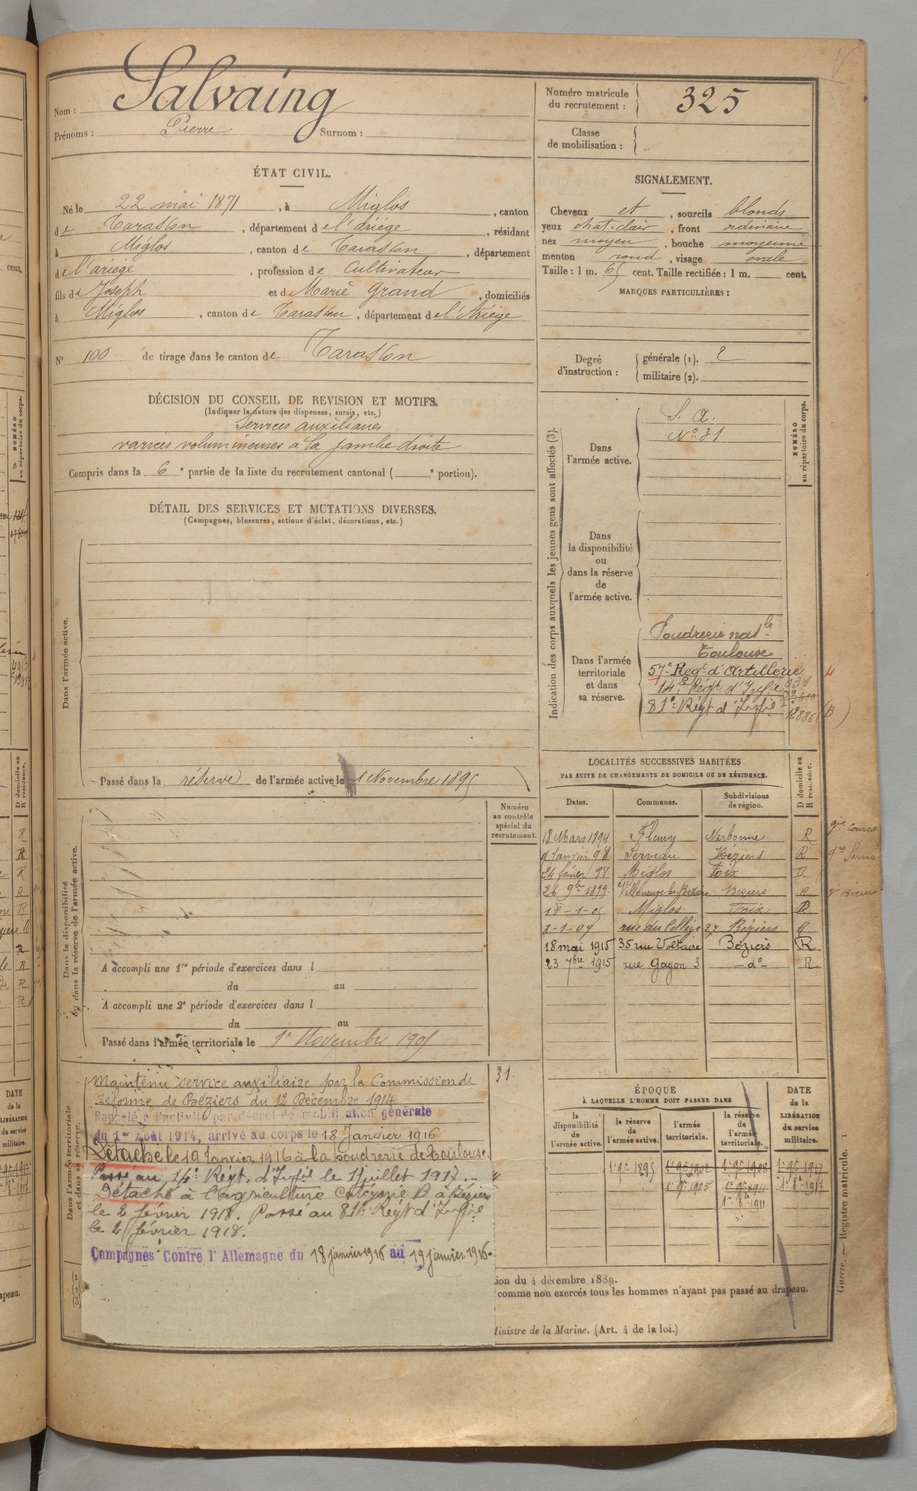 Nom : Salvaing
Prénoms : Pierre Surnom :
Numéro matricule du recrutement : 325
Classe de mobilisation :
ÉTAT CIVIL.
Né le 22 mai 1871, à Miglos, canton
de Tarascon, département de l'Ariège, résidant
à Miglos, canton de Tarascon, département
de l'ariège, profession de Cultivateur
fils de Joseph et de Marie Grand, domiciliés
à Miglos, canton de Tarascon, département de l'Ariège
N° 100 de tirage dans le canton de Tarascon
SIGNALEMENT.
Cheveux et, sourcils blonds
yeux chat. clair, front ordinaire
nez moyen, bouche moyenne
menton rond, visage ovale
Taille : 1 m. 65 cent. Taille rectifiée : 1 m. cent.
MARQUES PARTICULIÈRES :
Degré d'instruction : générale (1). 2
militaire (2).
DÉCISION DU CONSEIL DE REVISION ET MOTIFS.
(Indiquer la nature des dispenses, sursis, etc.)
Services auxiliaires
varices volumineuses à la jambe droite
Compris dans la 6e partie de la liste du recrutement cantonal ( e portion).
DÉTAIL DES SERVICES ET MUTATIONS DIVERSES.
(Campagnes, blessures, actions d'éclat, décorations, etc.)
Dans l'armée active.
Passé dans la réserve de l'armée active le 1 Novembre 1895
Indication des corps auxquels les jeunes gens sont affectés (3).
NUMÉRO au répertoire du corps.
Dans l'armée active.
S. A.
N° 31
Dans la disponibilité ou dans la réserve de l'armée active.
Dans l'armée territoriale et dans sa réserve.
Poudrerie natle
Toulouse
57e Regt d'Artillerie
14e Régt d'Inf.ie
81e Régt d'Inf.ie
(B)
LOCALITÉS SUCCESSIVES HABITÉES
PAR SUITE DE CHANGEMENTS DE DOMICILE OU DE RÉSIDENCE.
Dates. Communes. Subdivisions de région. D domicile ou R résidence.
18 Mars 1894 Fleury Narbonne R
Janvier 98 Servian Béziers R
24 février 98 Miglos Foix D
26 9bre 1899 Villeneuve-les-Béziers Béziers R
18-1-05 Miglos Foix R
2-1-07 rue du Collège 27 Béziers R
18 mai 1915 35 rue Voltaire Béziers R
23 7bre 1915 rue Gagon 3 - do - R
Dans la disponibilité ou dans la réserve de l'armée active.
Numéro au contrôle spécial du recrutement.
A accompli une 1re période d'exercices dans l
du au
A accompli une 2e période d'exercices dans l
du au
Passé dans l'armée territoriale le 1er Novembre 1905
Dans l'armée territoriale et dans sa réserve.
31
Maintenu service auxiliaire par la Commission de
réforme de Béziers du 12 Décembre 1914
Rappelé à l'activité par décret de mobilisation générale
du 1er Août 1914, arrivé au corps le 18 Janvier 1916
Détaché le 19 Janvier 1916 à la poudrerie de Toulouse.
Passé au 14e Régt. d'Inf.ie le 1 juillet 1917.
Détaché à l'Agriculture Catégorie B à Béziers
le 2 février 1918. Passé au 81e Régt d'Inf.ie
le 2 février 1918.
Campagnes Contre l'Allemagne du 18 janvier 1916 au 19 janvier 1916.
ÉPOQUE
À LAQUELLE L'HOMME DOIT PASSER DANS
la disponibilité de l'armée active. la réserve de l'armée active. l'armée territoriale. la réserve de l'armée territoriale. DATE de la LIBÉRATION du service militaire.
1er 9bre 1895 1er 9bre 1902 1er 9bre 1908 1er 9bre 1917
1er 9bre 1905 1er 9bre 1911 1er 8bre 1917
1er 8bre 1911
ion du 4 décembre 1889.
comme non exercés tous les hommes n'ayant pas passé au drapeau.
Ministre de la Marine. (Art. 4 de la loi.)
Guerre. — Registre matricule. 1